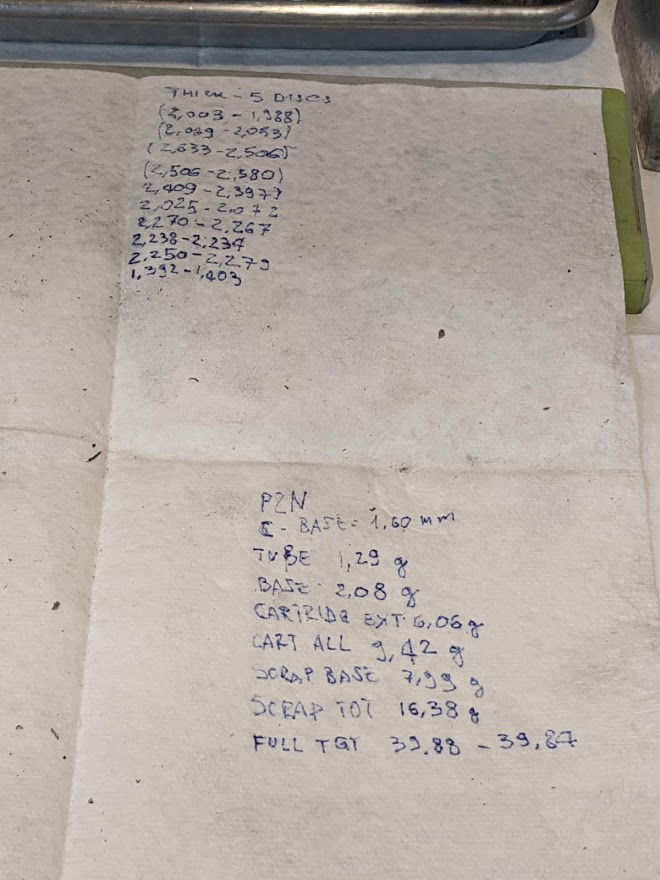 THICK - 5 DISCS
(2,003 - 1,988)
(2,089 - 2,053)
(2,633 - 2,506)
(2,506 - 2,580)
2,409 - 2,397)
2,025 - 2,072
2,270 - 2,267
2,238 - 2,234
2,250 - 2,279
1,392 - 1,403
PZN
BASE = 1,60 mm
TUBE 1,29 g
BASE 2,08 g
CARTRIDG EXT 6,06 g
CART ALL 9,42 g
SCRAP BASE 7,99 g
SCRAP TOT 16,38 g
FULL TGT 39.88 - 39,87